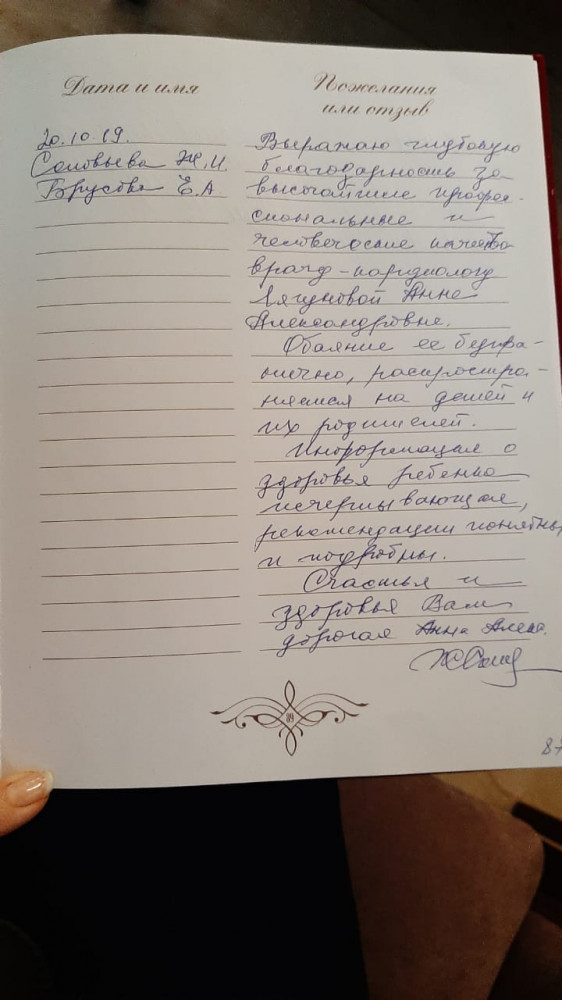 Дата и имя
Пожелания
или отзыв
20.10.19.
Соловьева Ж.И.
Брусова Е.А
Выражаю глубокую
благодарность за
высочайшие профес-
сиональные и
человеческие качества
врачу-кардиологу
Лягуновой Анне
Александровне.
Обаяние ее безгра-
нично, распростра-
няется на детей и
их родителей.
Информация о
здоровья ребенка
исчерпывающая,
рекомендации понятны
и подробны.
Счастья и
здоровья Вам
дорогая Анна Алекс.
119
87